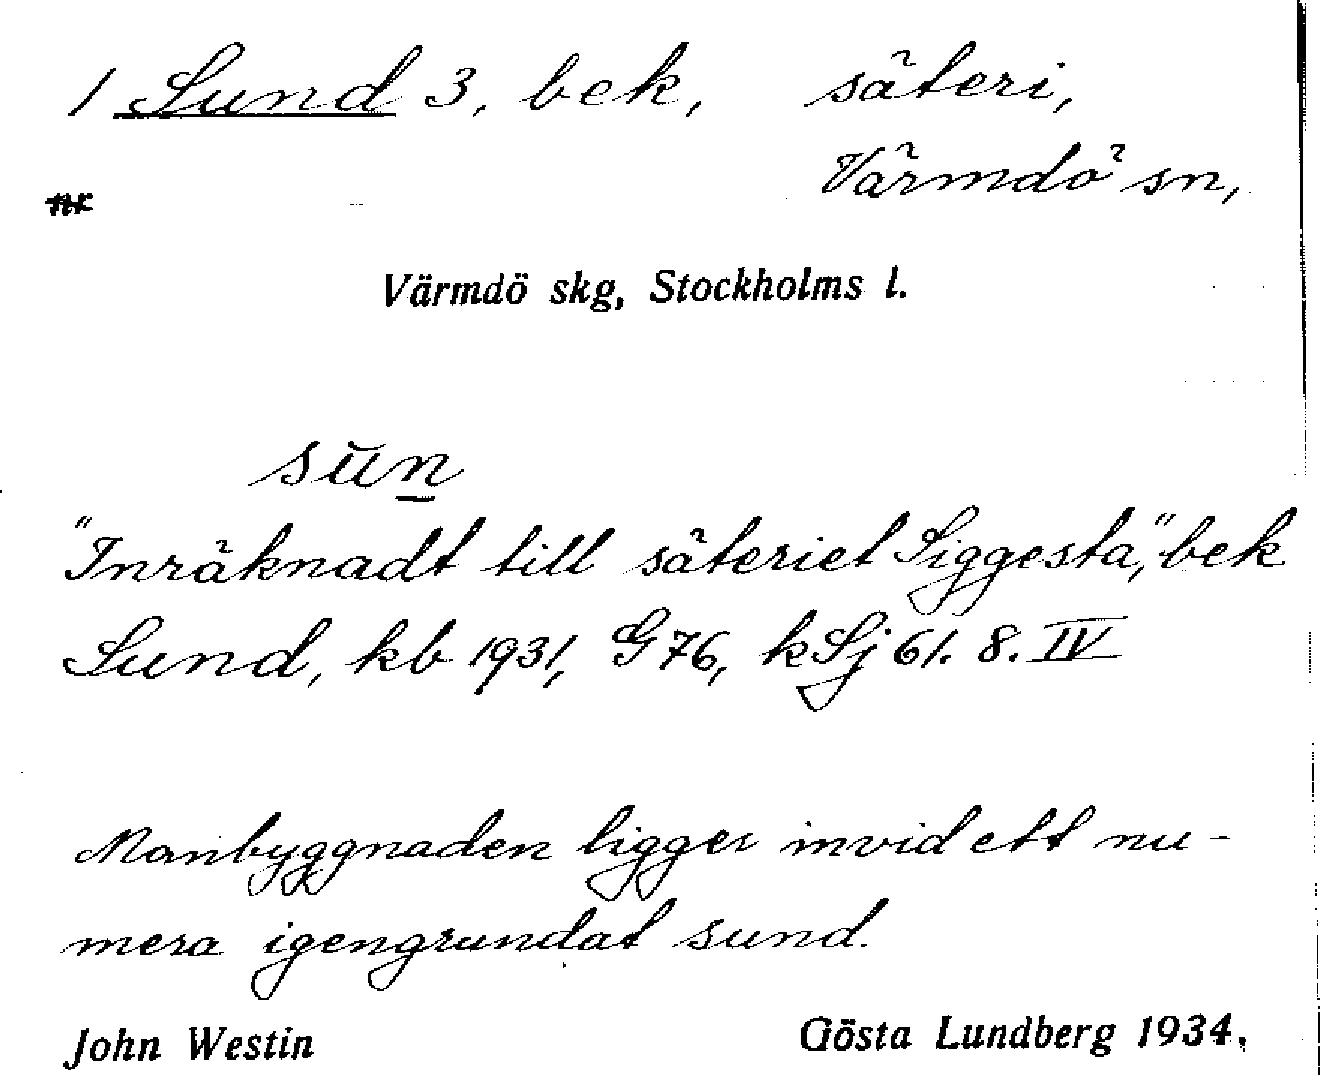 1 Sund 3, bek, säteri,
Värmdö sn,
Värmdö skg, Stockholms l.
sŭn
"Inräknadt till säteriet Siggesta," bek
Sund, kb 1931, G 76, kSj 61. 8. IV
Manbyggnaden ligger invid ett nu-
mera igengrundat sund.
John Westin Gösta Lundberg 1934.